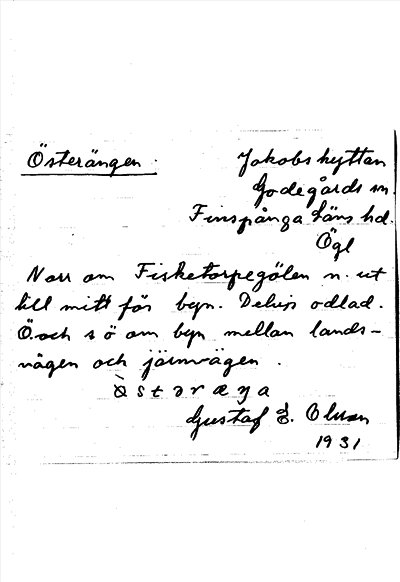 Österängen.
Jakobshyttan
Godegårds sn.
Finspånga läns hd.
Ögl
Norr om Fisketorpegölen n. ut
till mitt för byn. Delvis odlad.
Ö. och s ö om byn mellan lands-
vägen och järnvägen.
Gustaf E. Olson
1931